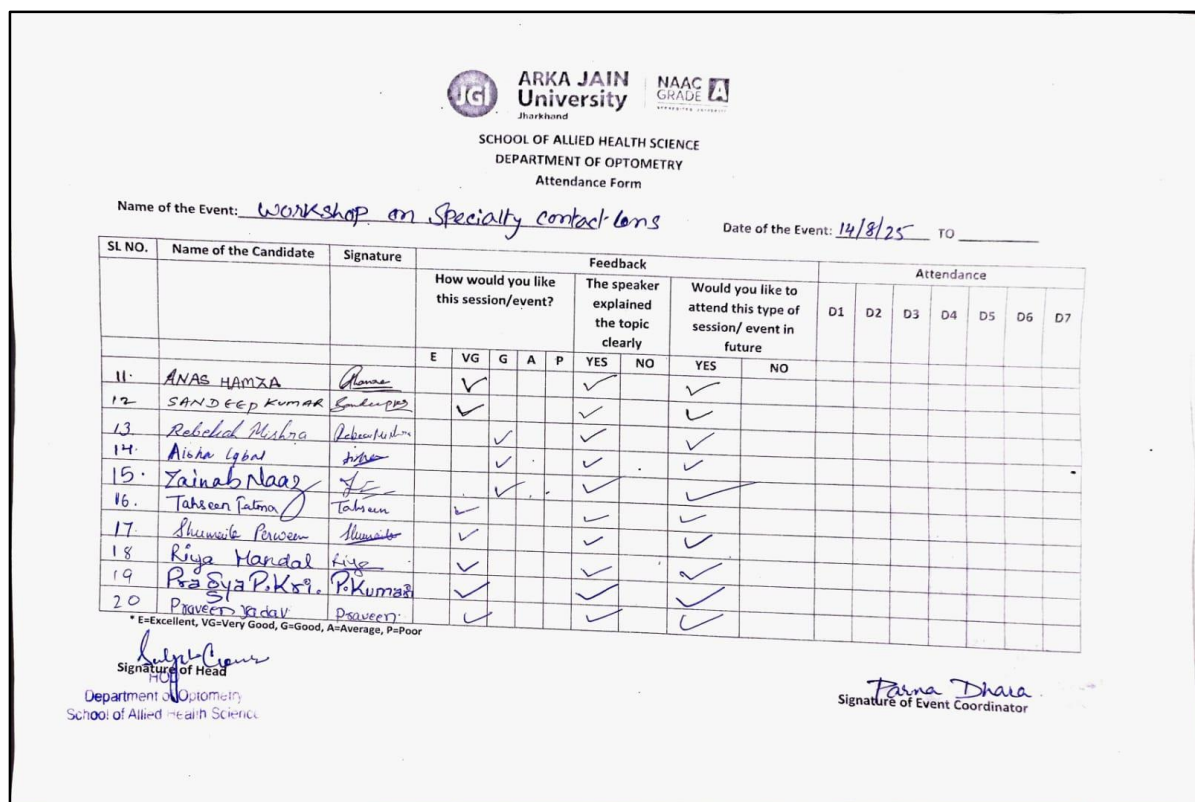 JGI
ARKA JAIN
University
Jharkhand
NAAC
GRADE A
SCHOOL OF ALLIED HEALTH SCIENCE
DEPARTMENT OF OPTOMETRY
Attendance Form
Name of the Event: Workshop on Specialty contact lens Date of the Event: 14/8/25 TO
SL NO. Name of the Candidate Signature Feedback Attendance
How would you like this session/event? The speaker explained the topic clearly Would you like to attend this type of session/ event in future D1 D2 D3 D4 D5 D6 D7
E VG G A P YES NO YES NO
11. ANAS HAMZA ✓ ✓ ✓
12 SANDEEP KUMAR ✓ ✓ ✓
13 Rebekah Mishra ✓ ✓ ✓
14. Aisha Iqbal ✓ ✓ ✓
15. Zainab Naaz ✓ ✓ ✓
16. Tahseen Fatma Tahseen ✓ ✓ ✓
17. Shumaila Perween ✓ ✓ ✓
18 Riya Mandal Riya ✓ ✓ ✓
19 P.Kri. P.Kumari ✓ ✓ ✓
20 Praveen Yadav Praveen. ✓ ✓ ✓
* E=Excellent, VG=Very Good, G=Good, A=Average, P=Poor
Signature of Head
HOD
Department of Optometry
School of Allied Health Science
Parna Dhara
Signature of Event Coordinator